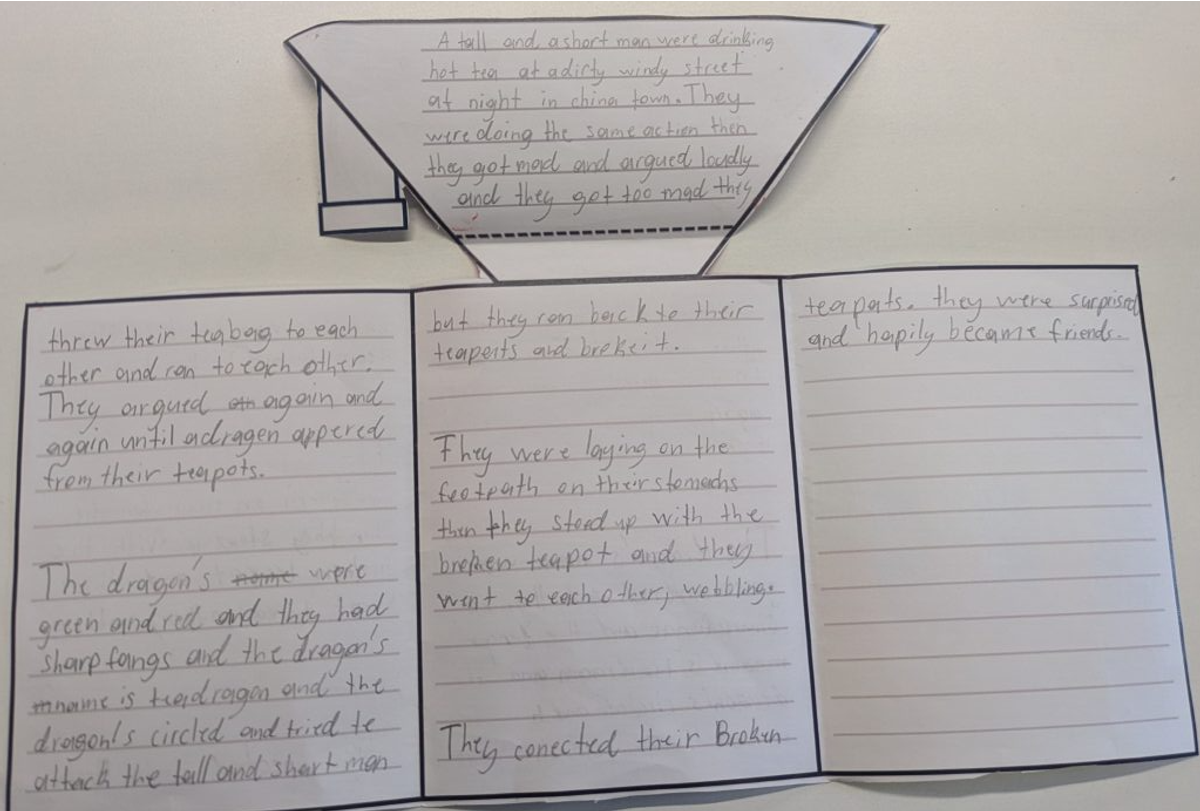 A tall and a short man were drinking
hot tea at a dirty windy street
at night in china town. They
were doing the same action then
they got mad and argued loudly
and they got too mad they
threw their teabag to each
other and ran to each other.
They argued again and
again until a dragen appered
from their teapots.
The dragon's name were
green and red and they had
sharp fangs and the dragon's
name is teadragon and the
dragon's circled and tried to
attack the tall and short man
but they ran back to their
teapots and broke it.
They were laying on the
footpath on their stomachs
then they stood up with the
broken teapot and they
went to each other, wobbling.
They conected their Broken
teapots. they were surprised
and hapily became friends.